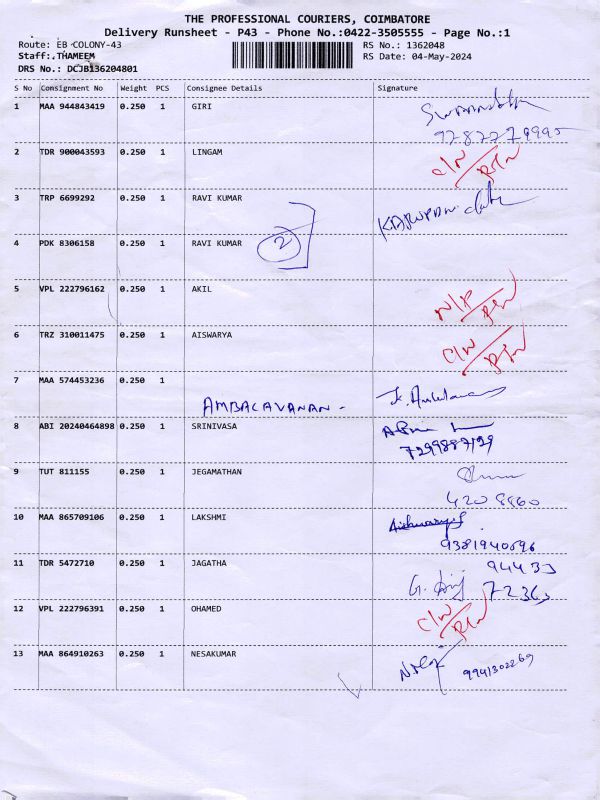 THE PROFESSIONAL COURIERS, COIMBATORE
Delivery Runsheet - P43 - Phone No.:0422-3505555 - Page No.:1
Route: EB COLONY-43
RS No.: 1362048
Staff:.THAMEEM
RS Date: 04-May-2024
DRS No.: DCJB136204801
S No Consignment No Weight PCS Consignee Details Signature
1 MAA 944843419 0.250 1 GIRI
2 TDR 900043593 0.250 1 LINGAM C/N RTN
3 TRP 6699292 0.250 1 RAVI KUMAR
2
4 PDK 8306158 0.250 1 RAVI KUMAR
5 VPL 222796162 0.250 1 AKIL N/P
6 TRZ 310011475 0.250 1 AISWARYA C/N RTN
7 MAA 574453236 0.250 1
AMBALAVANAN -
8 ABI 20240464898 0.250 1 SRINIVASA
7299887129
9 TUT 811155 0.250 1 JEGAMATHAN
420 8860
10 MAA 865709106 0.250 1 LAKSHMI
9381940696
11 TDR 5472710 0.250 1 JAGATHA 94433
72363
12 VPL 222796391 0.250 1 OHAMED C/N RTN
13 MAA 864910263 0.250 1 NESAKUMAR
9941302269